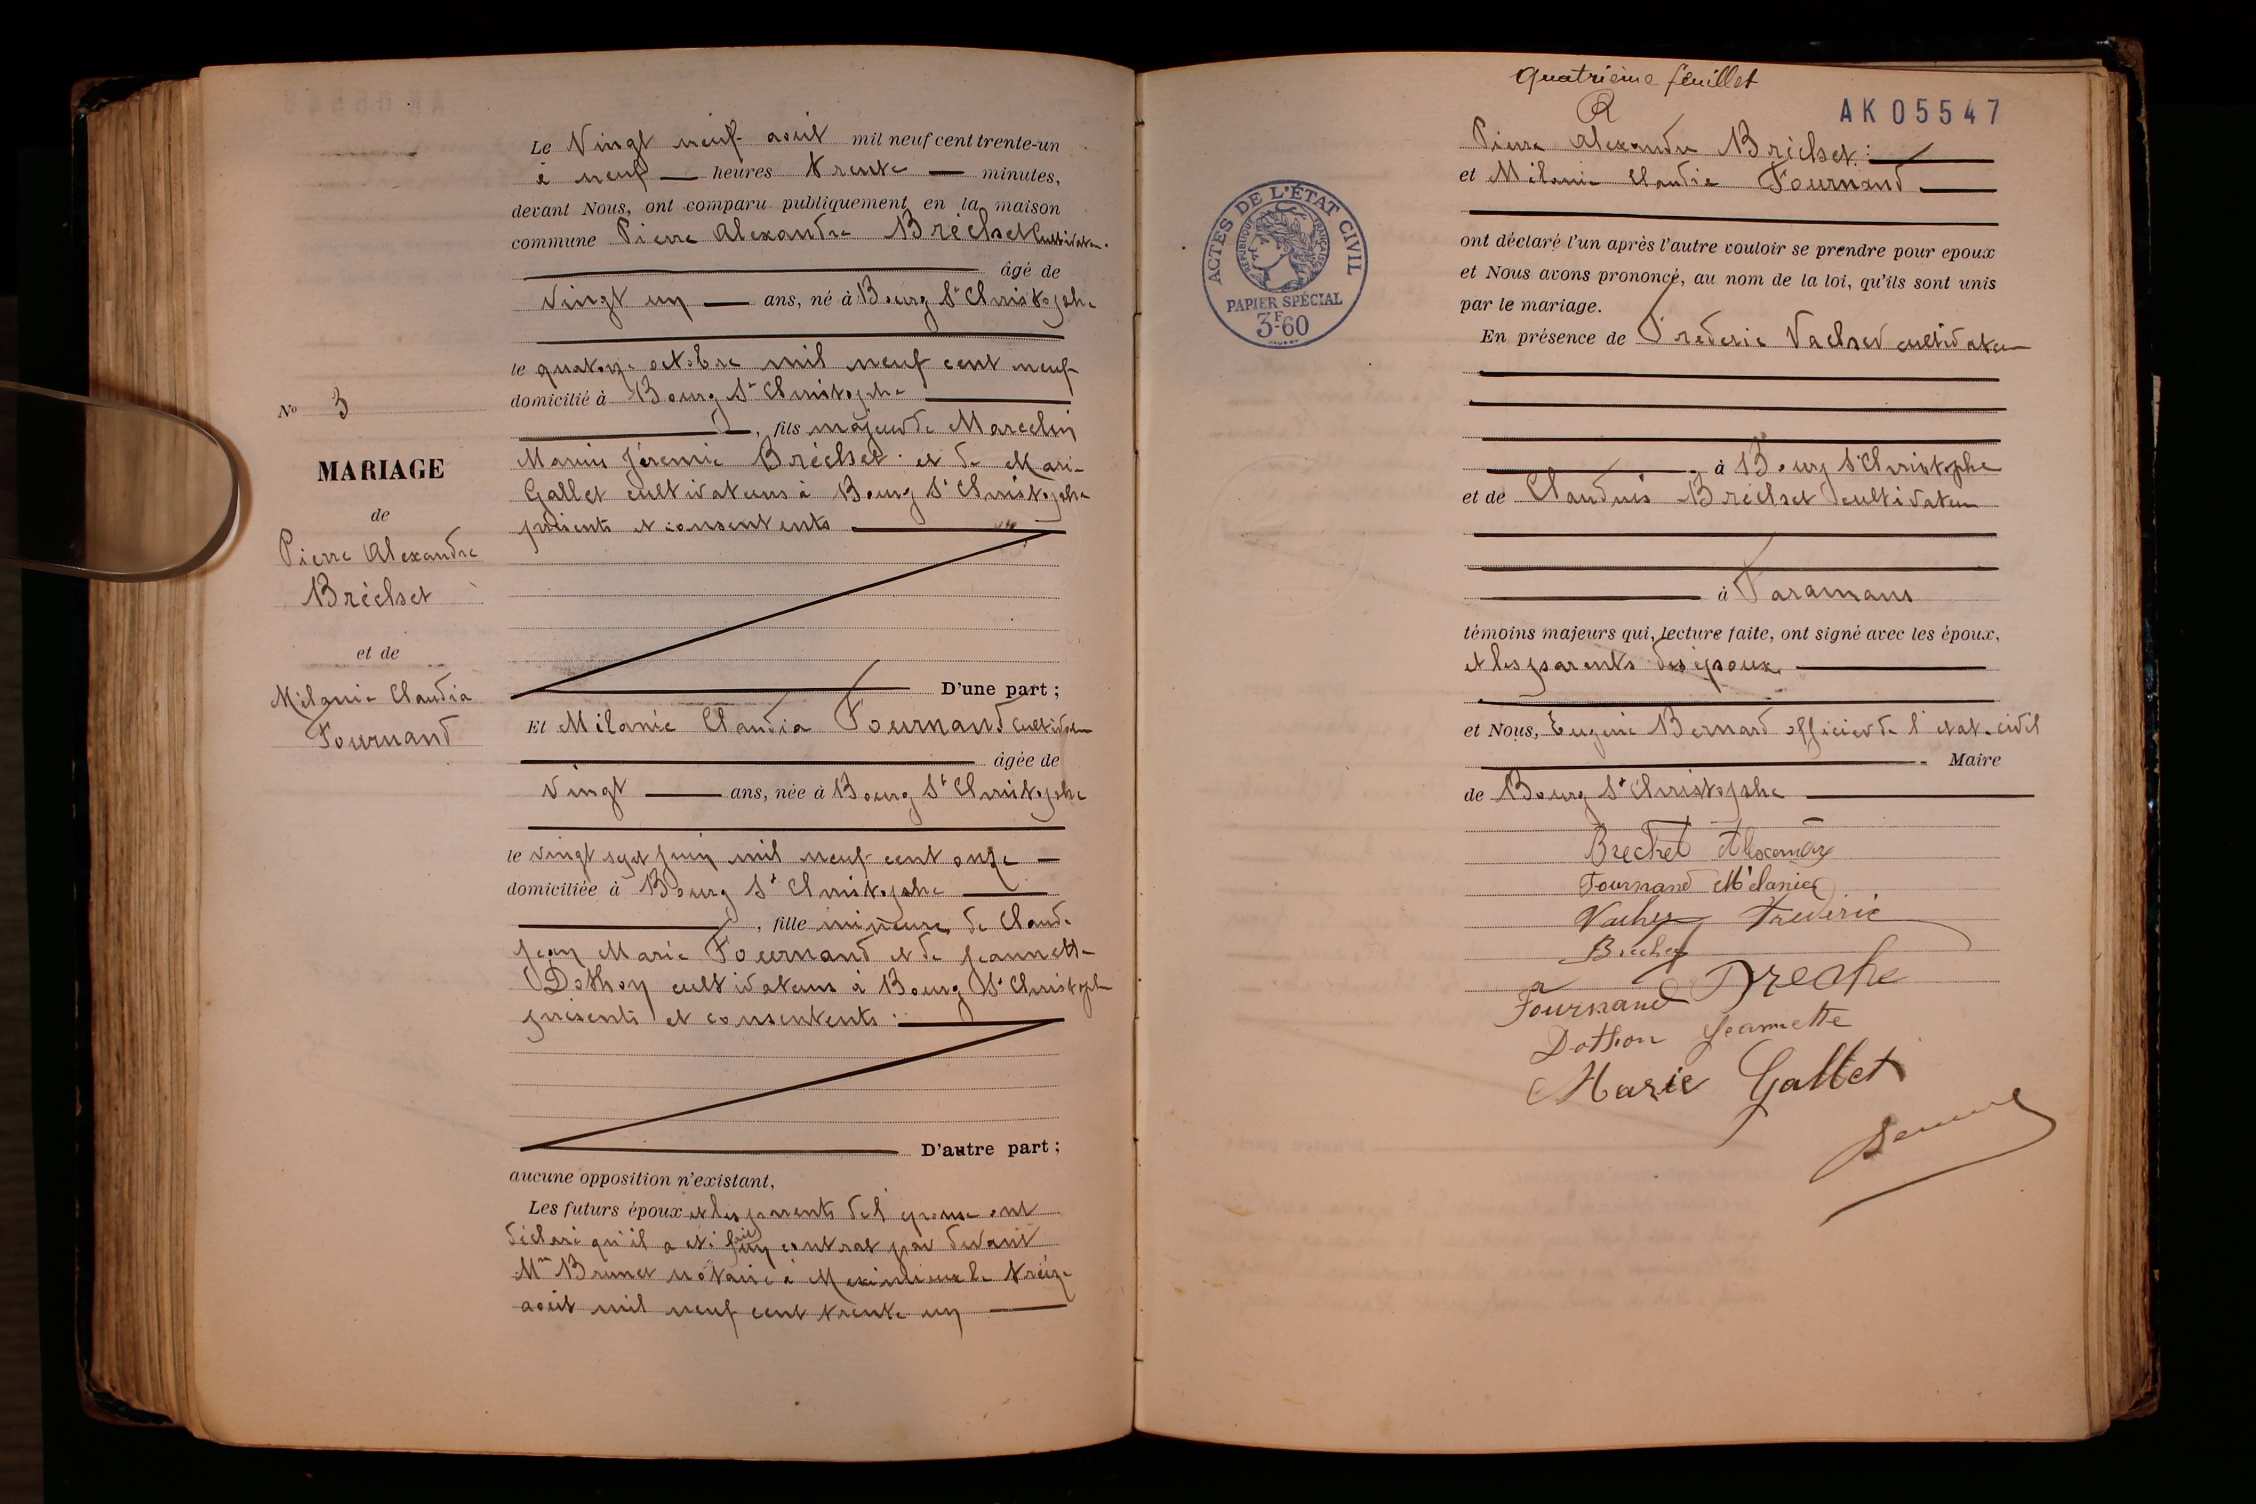 Le Vingt neuf août mil neuf cent trente-un
à neuf heures trente minutes,
devant Nous, ont comparu publiquement en la maison
commune Pierre Alexandre Bréchet Cultivateur
âgé de
vingt un ans, né à Bourg St Christophe
le quatorze octobre mil neuf cent neuf
domicilié à Bourg St Christophe
, fils majeur de Marcelin
Marius Jéremie Bréchet et de Marie
Gallet cultivateurs à Bourg St Christophe
présents et consentents
D'une part ;
Et Mélanie Claudia Fournand Cultivatrice
âgée de
Vingt ans, née à Bourg St Christophe
le vingt sept juin mil neuf cent onze
domiciliée à Bourg St Christophe
, fille mineure de Claude
Jean Marie Fournand et de Jeannette
Dothon cultivateurs à Bourg St Christophe
présents et consentents
D'autre part ;
aucune opposition n'existant,
Les futurs époux et les parents de l'épouse ont
déclaré qu'il a été fait un contrat par devant
Me Brunet notaire à Meximieux le treize
août mil neuf cent trente un
No 3
MARIAGE
de
Pierre Alexandre
Bréchet
et de
Mélanie Claudia
Fournand
quatrième feuillet
AK 05547
Pierre Alexandre Bréchet
et Mélanie Claudia Fournand
ACTES DE L'ÉTAT CIVIL
RÉPUBLIQUE FRANÇAISE
PAPIER SPÉCIAL
3F60
ont déclaré l'un après l'autre vouloir se prendre pour epoux
et Nous avons prononcé, au nom de la loi, qu'ils sont unis
par le mariage.
En présence de Frederic Vacher cultivateur
à Bourg St Christophe
et de Claudius Bréchet cultivateur
à Faramans
témoins majeurs qui, lecture faite, ont signé avec les époux,
et les parents des époux
et Nous, Eugène Bernard officier de l'etat-civil
Maire
de Bourg St Christophe
Brechet Alexandre
Fournand Mélanie
Vacher Frederic
Brechet
Fournand
Dothon Jeannette
Marie Gallet